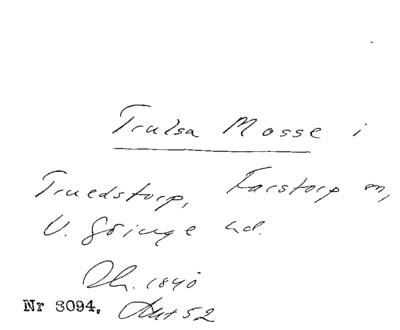 Trulsa Mosse i
Truedstorp, Farstorp sn,
V. Göinge hd.
Dh. 1840
Nr 3094. Aut 52